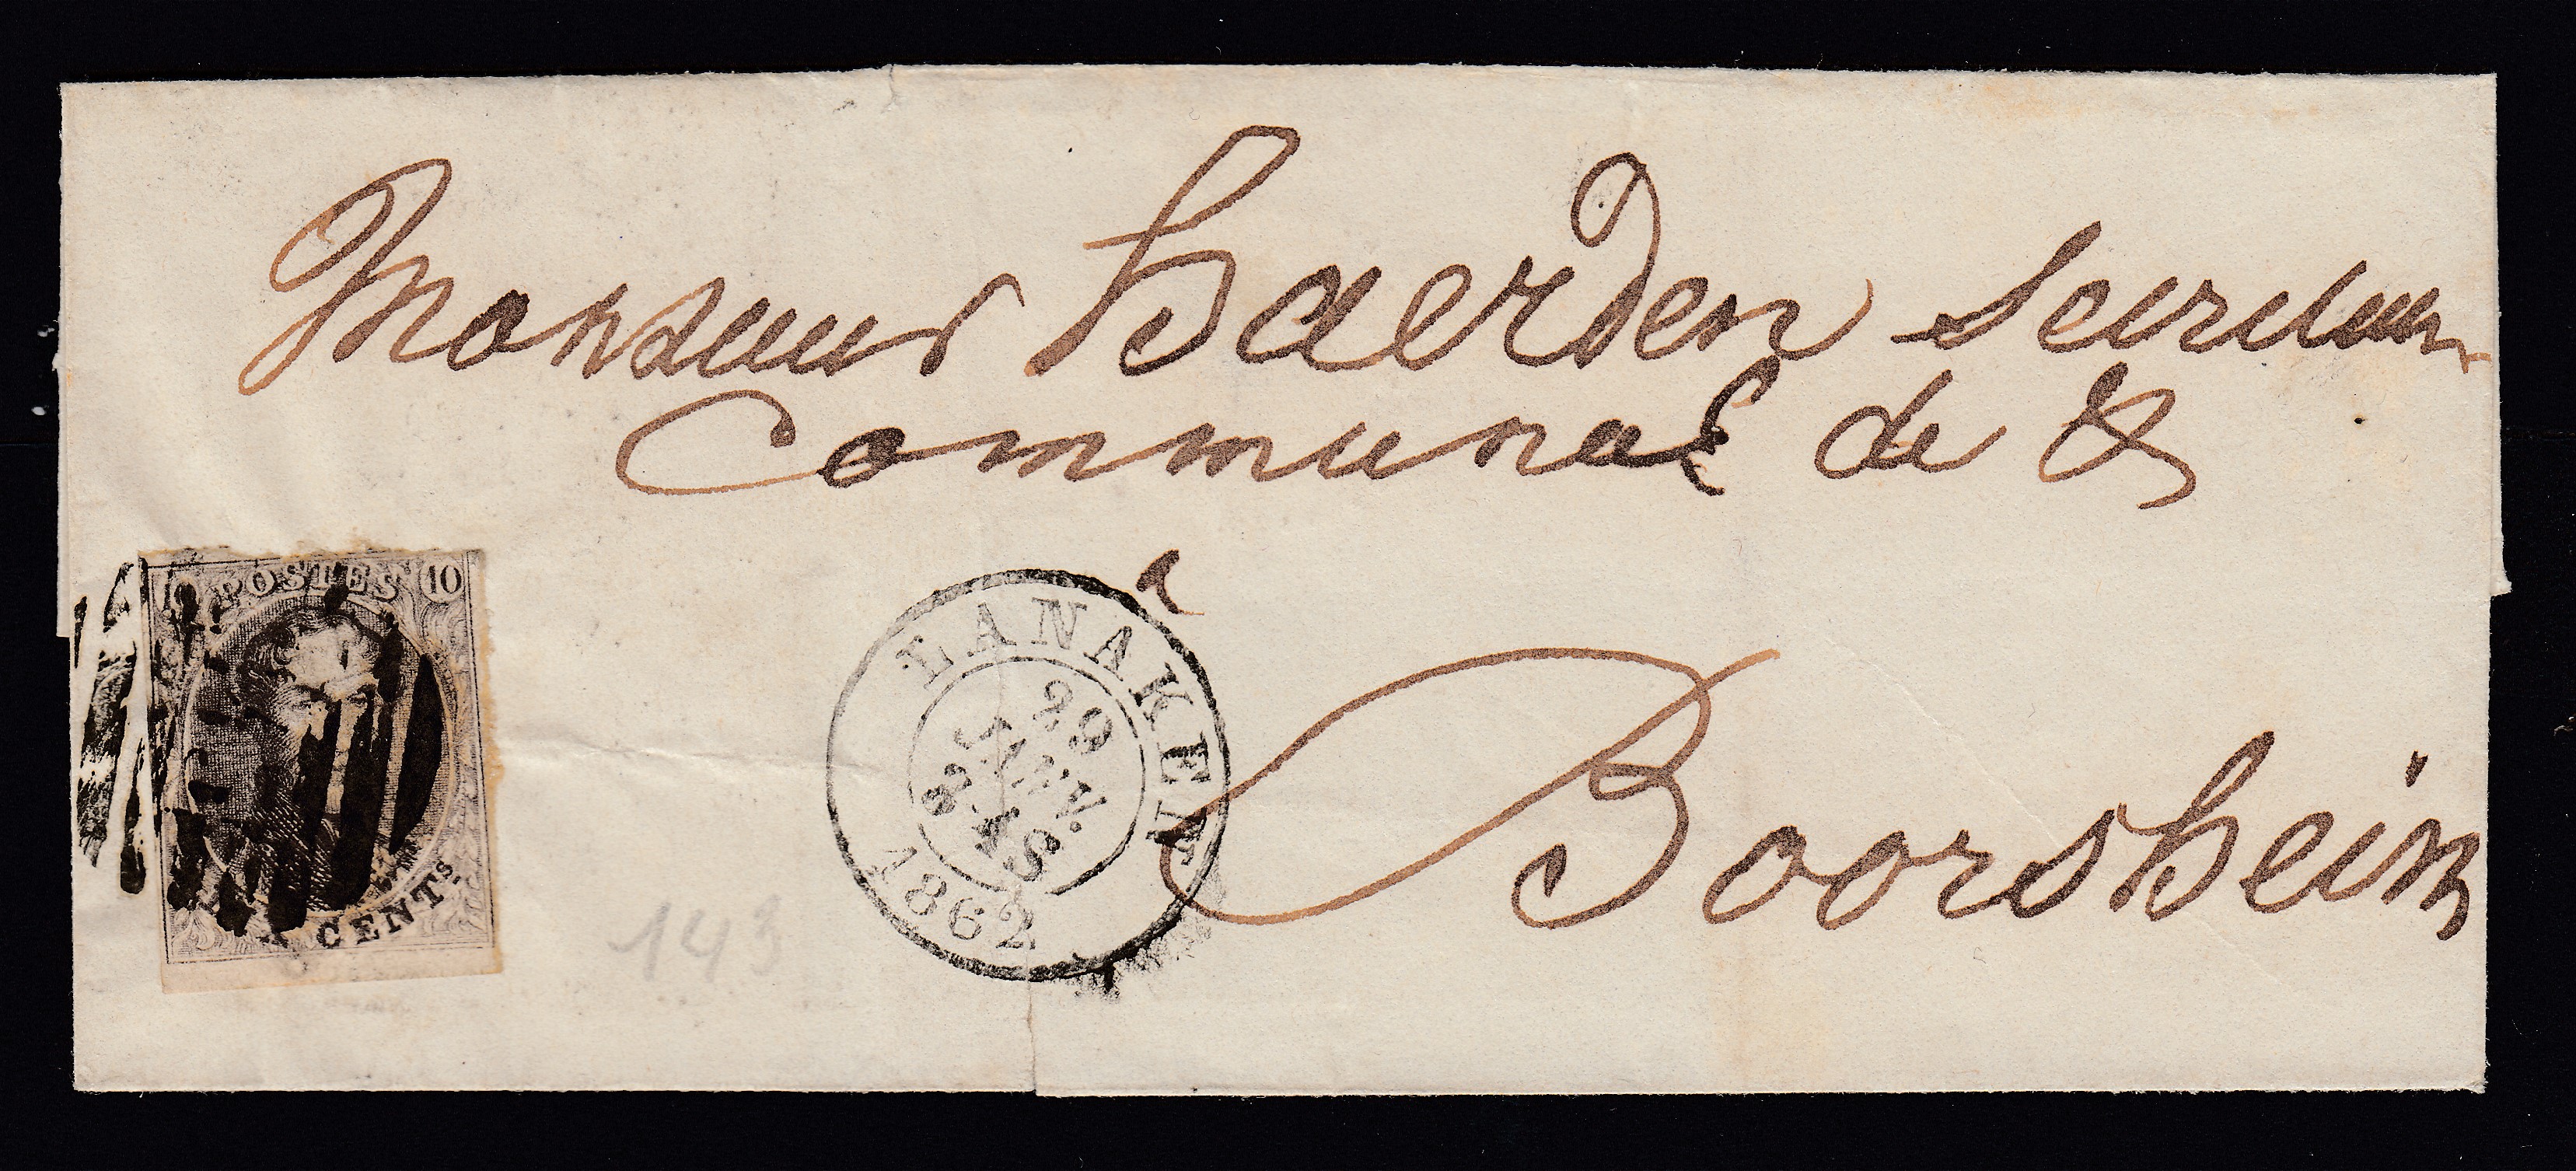 Monsieur Haerden Secretaire
Communal de &
a
Boorsheim
10 POSTES 10
CENTS.
LANAKEN
29
JANV.
8-S
1862
143